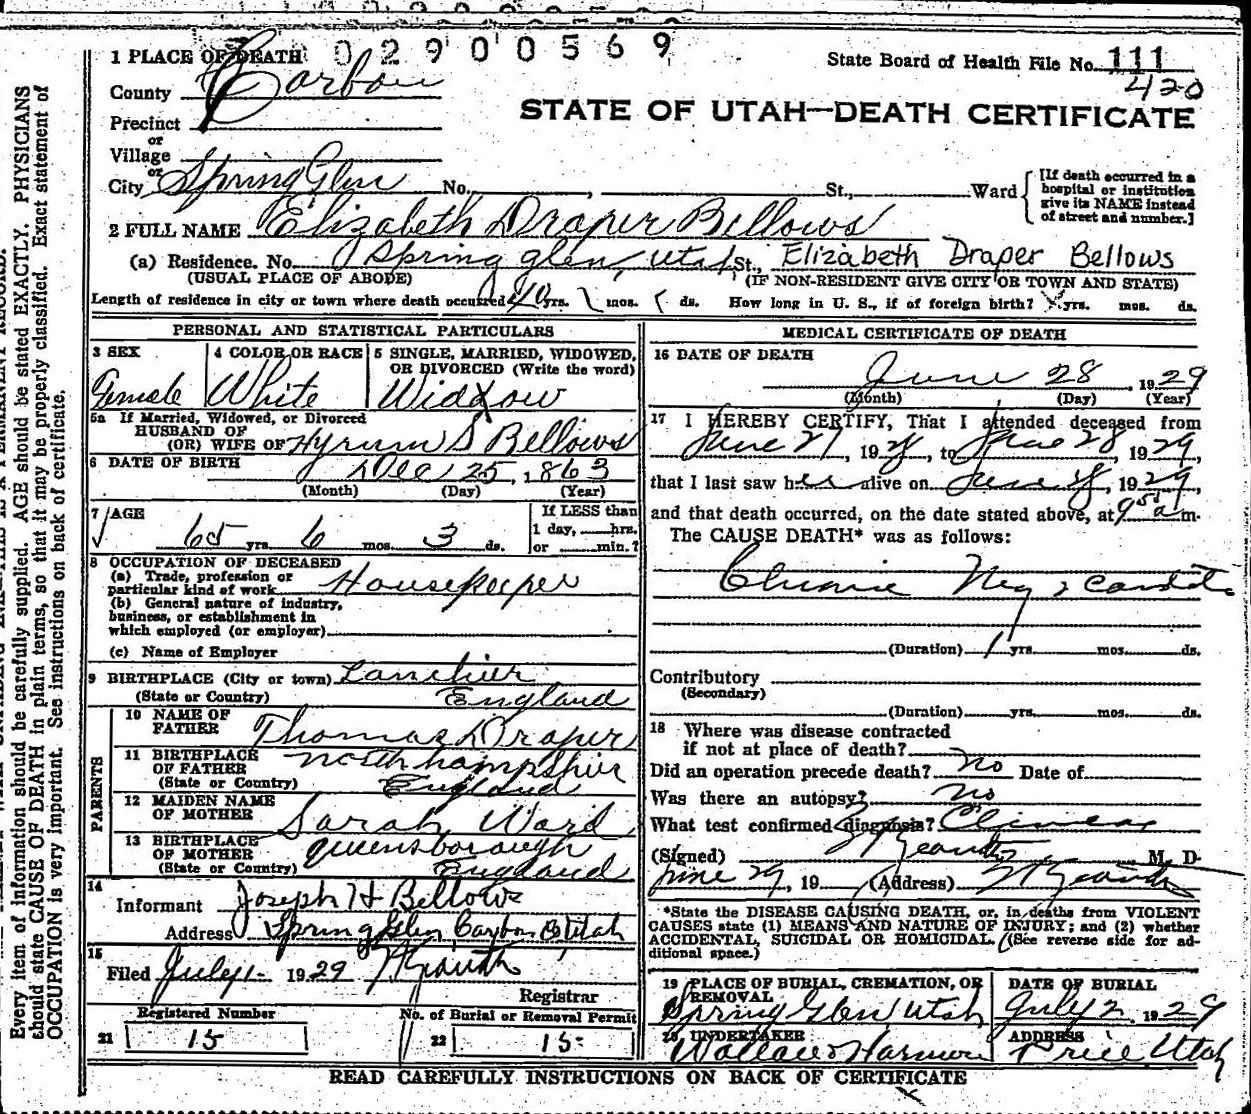 0 2 9 0 0 5 6 9
1 PLACE OF DEATH
State Board of Health File No. 111
420
County Carbon
STATE OF UTAH—DEATH CERTIFICATE
Precinct
or
Village
or
City Spring Glen No. , St., Ward
[If death occurred in a
hospital or institution
give its NAME instead
of street and number.]
2 FULL NAME Elizabeth Draper Bellows
(a) Residence. No. Spring Glen, Utah St., Elizabeth Draper Bellows
(USUAL PLACE OF ABODE) (IF NON-RESIDENT GIVE CITY OR TOWN AND STATE)
Length of residence in city or town where death occurred 40 yrs. mos. ds. How long in U. S., if of foreign birth? yrs. mos. ds.
PERSONAL AND STATISTICAL PARTICULARS
3 SEX Female
4 COLOR OR RACE White
5 SINGLE, MARRIED, WIDOWED,
OR DIVORCED (Write the word)
Widow
5a If Married, Widowed, or Divorced
HUSBAND OF
(OR) WIFE OF Hyrum S Bellows
6 DATE OF BIRTH Dec 25, 1863
(Month) (Day) (Year)
7 AGE 65 yrs. 6 mos. 3 ds.
If LESS than
1 day, hrs.
or min.?
8 OCCUPATION OF DECEASED
(a) Trade, profession or
particular kind of work Housekeeper
(b) General nature of industry,
business, or establishment in
which employed (or employer)
(c) Name of Employer
9 BIRTHPLACE (City or town)
(State or Country) England
PARENTS
10 NAME OF
FATHER Thomas Draper
11 BIRTHPLACE
OF FATHER northhampshier
(State or Country) England
12 MAIDEN NAME
OF MOTHER Sarah Ward
13 BIRTHPLACE
OF MOTHER queensborough
(State or Country) England
14
Informant Joseph H Bellows
Address Spring Glen Carbon Co Utah
15
Filed July 1- 1929
Registrar
Registered Number
21 15
No. of Burial or Removal Permit
22 15-
MEDICAL CERTIFICATE OF DEATH
16 DATE OF DEATH
June 28, 1929
(Month) (Day) (Year)
17 I HEREBY CERTIFY, That I attended deceased from
June 27, 19 , to June 28, 1929,
that I last saw her alive on June , 1929,
and that death occurred, on the date stated above, at 9 a m.
The CAUSE DEATH* was as follows:
Chronic
(Duration) 1 yrs. mos. ds.
Contributory
(Secondary)
(Duration) yrs. mos. ds.
18 Where was disease contracted
if not at place of death?
Did an operation precede death? no Date of
Was there an autopsy? no
What test confirmed diagnosis? Clinical
(Signed) M. D.
June 29, 19 (Address)
*State the DISEASE CAUSING DEATH, or, in deaths from VIOLENT
CAUSES state (1) MEANS AND NATURE OF INJURY; and (2) whether
ACCIDENTAL, SUICIDAL OR HOMICIDAL. (See reverse side for ad-
ditional space.)
19 PLACE OF BURIAL, CREMATION, OR
REMOVAL
Spring Glen Utah
DATE OF BURIAL
July 2, 1929
20 UNDERTAKER
Wallace & Harmon
ADDRESS
Price Utah
READ CAREFULLY INSTRUCTIONS ON BACK OF CERTIFICATE
Every item of information should be carefully supplied. AGE should be stated EXACTLY. PHYSICIANS
should state CAUSE OF DEATH in plain terms, so that it may be properly classified. Exact statement of
OCCUPATION is very important. See instructions on back of certificate.